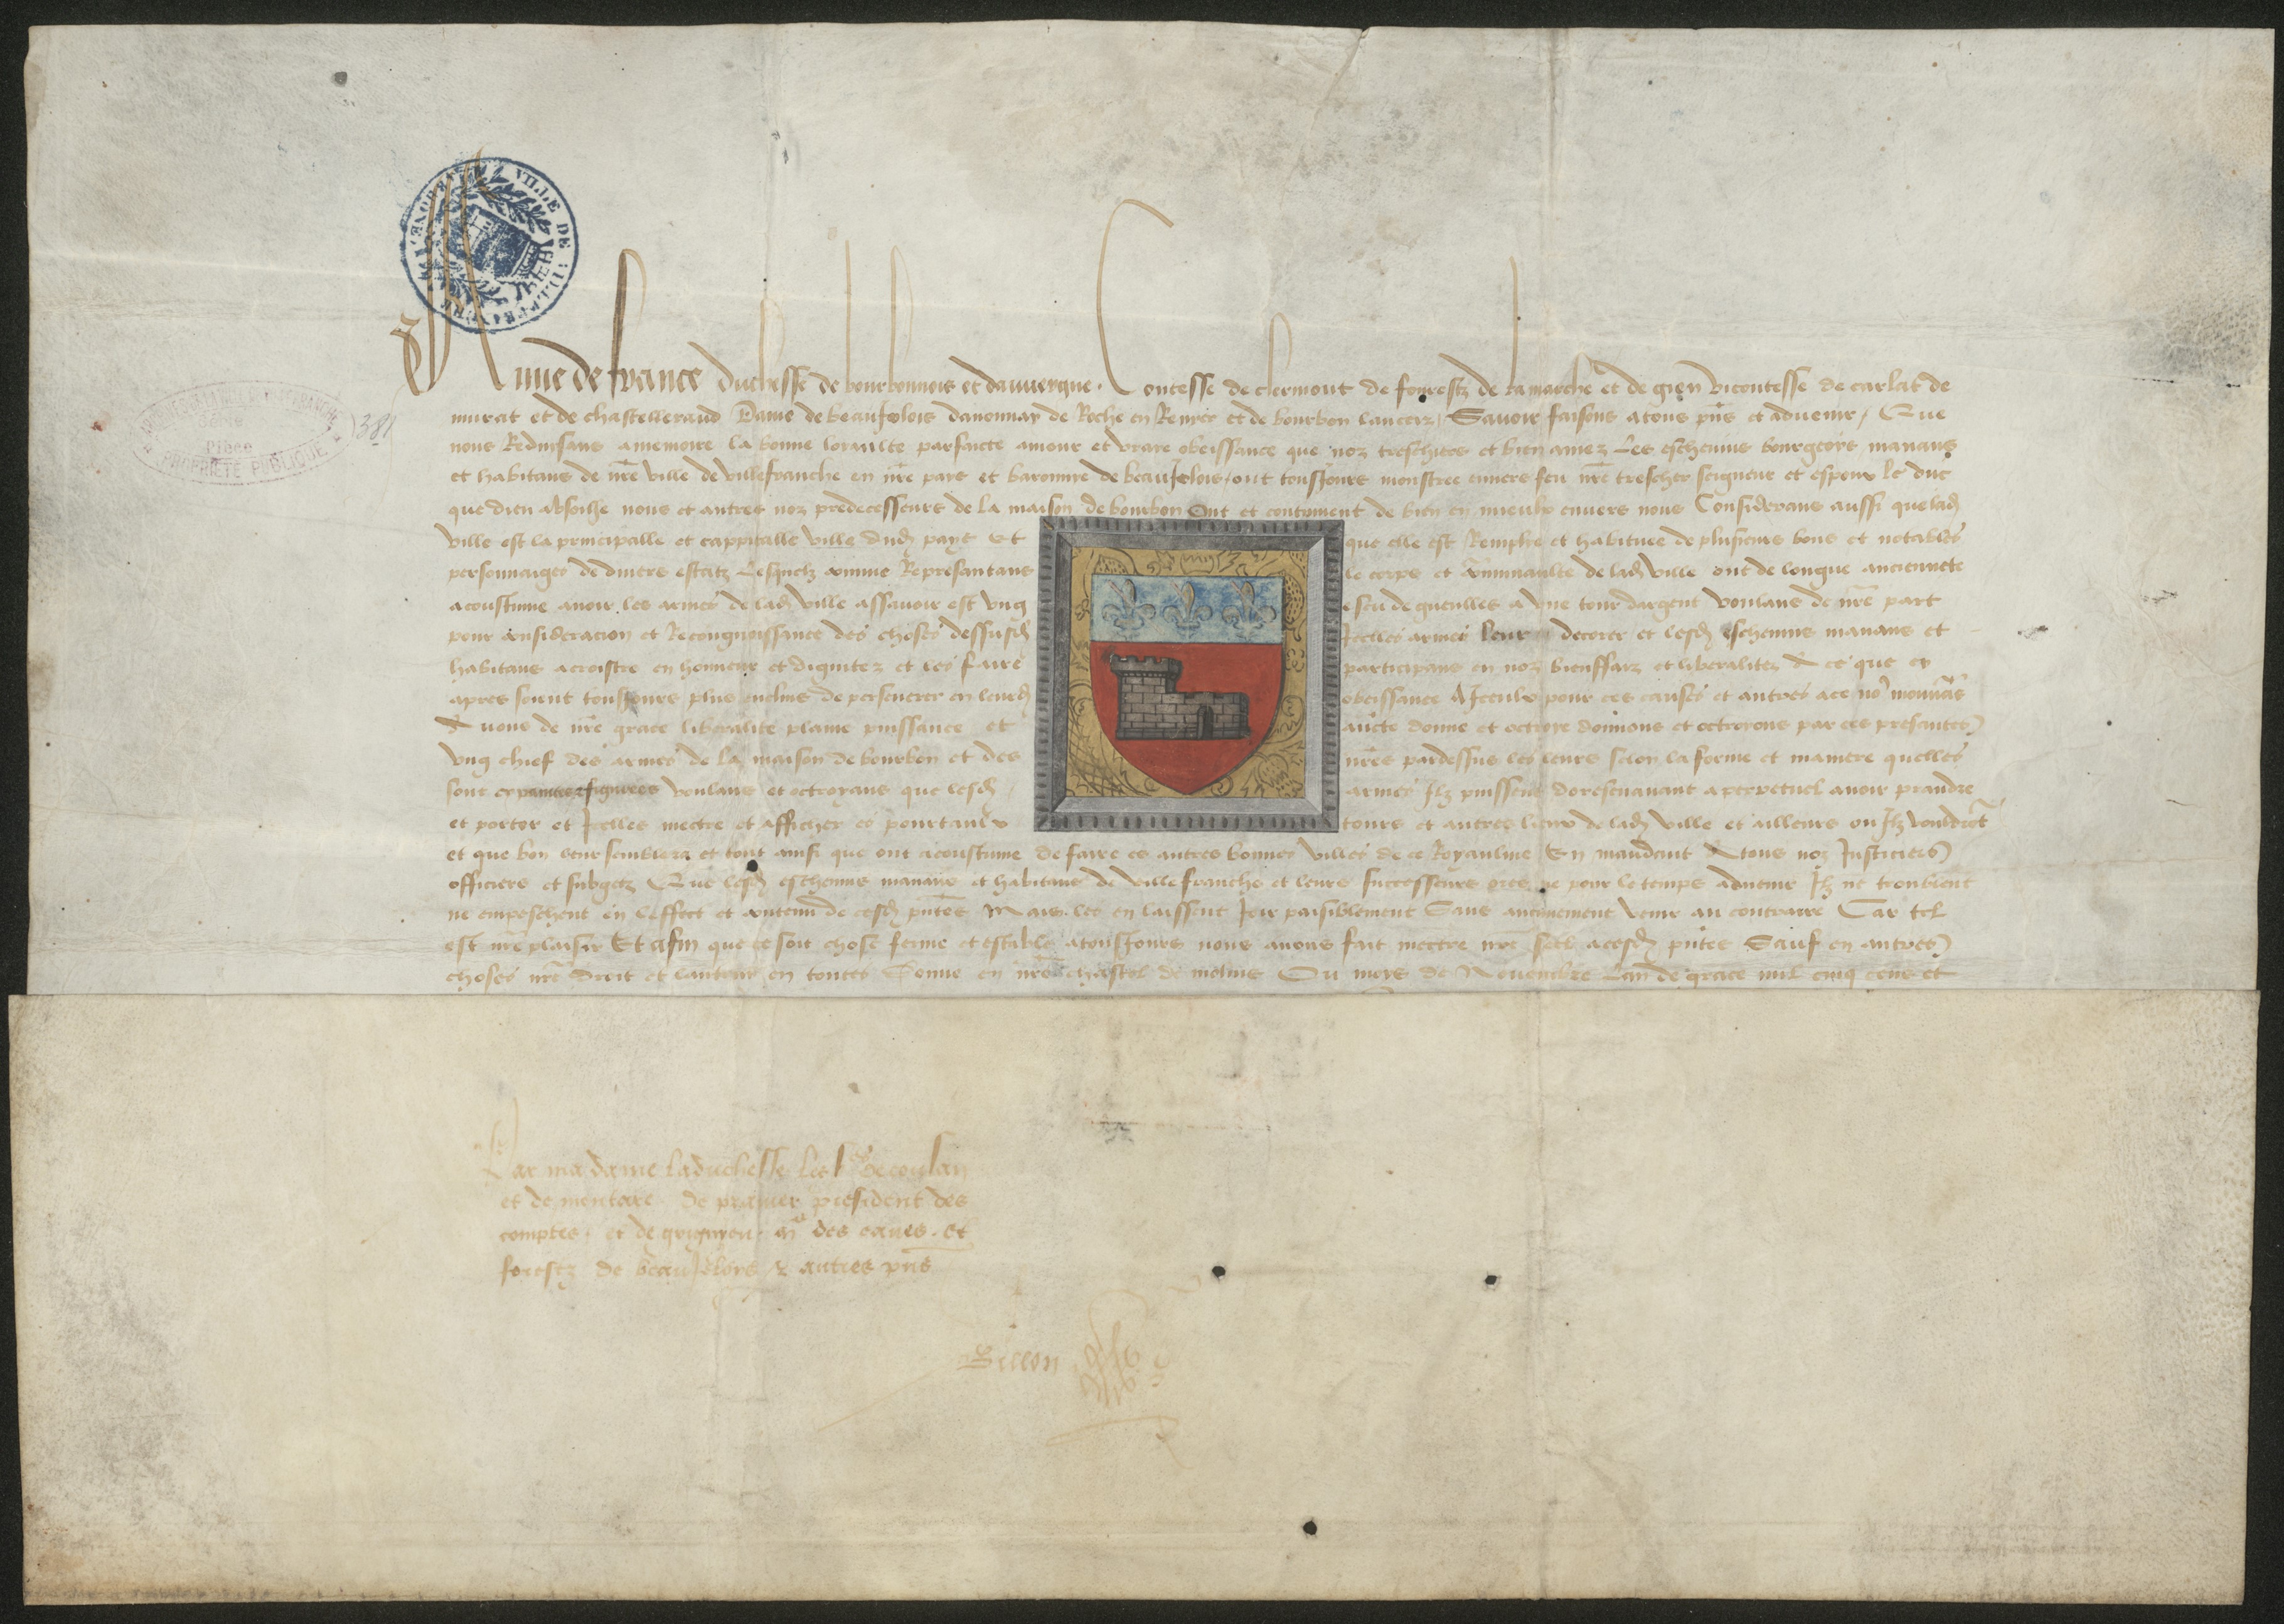 VILLE DE VILLEFRANCHE
PROPRIÉTÉ PUBLIQUE
381
Anne de france duchesse de bourbonnois et dauvergne. Contesse de clermont de fourestz de la marche et de gien vicontesse de carlat de
murat et de chastelleraud Dame de beaujelois danonnay de Roche en Renyer et de bourbon lanceiz, Savoir faisons a tous pn̄s et advenir, Que
nous Reduisans a memoire la bonne loyaulte parfaicte amour et vraye obeissance que noz treschiers et bien amez Les eschevins bourgeois manans
et habitans de nr̄e ville de villefranche en nr̄e pays et baronnye de beaujelois, ont tousjours monstree envers feu nr̄e trescher seigneur et espoux le duc
que dieu absoille nous et autres noz predecesseurs de la maison de bourbon Ont et continuent de bien en mieulx envers nous Considerans aussi que lad
ville est la principalle et cappitalle ville dud pays Et que elle est Remplie et habituee de plusieurs bons et notables
personnaiges de divers estatz Lesquelz comme Represantans le corps et communaulte de lad ville ont de longue anciennete
acoustume avoir les armes de lad ville assavoir est ung escu de gueulles a une tour dargent voulans de nr̄e part
pour consideracion et Recongnoissance des choses dessusd Icelles armes leur decorer et lesd eschevins manans et
habitans acroistre en honneur et dignitez et les faire participans en noz bienffaiz et liberalitez A ce que cy
apres soient tousjours plus enclins de perseverer en leurd obeissance A Iceulx pour ces causes et autres a ce no9 mouvās
A nous de nr̄e grace liberalite plaine puissance et aucte donne et octroye donnons et octroyons par ces presentes
ung chief des armes de la maison de bourbon et des nr̄es pardessus les leurs selon la forme et maniere quelles
sont cy painctes figurees voulans et octroyans que lesd armes Ilz puissent doresenavant a perpetuel avoir prandre
et porter et Icelles mectre et afficher es pourtaulx tours et autres lieux de lad ville et ailleurs ou Ilz vouldrōt
et que bon leur semblera et tout ainsi que ont acoustume de faire es autres bonnes villes de ce Royaulme En mandant A tous noz Justiciers
officiers et subgetz Que lesd eschevins manans et habitans de villefranche et leurs successeurs ores ne pour le temps advenir Ilz ne troublent
ne empeschent en leffect et contenu de cesd pn̄tes Mais les en laissent Joir paisiblement Sans aucunement venir au contraire Car tel
est nr̄e plaisir Et afin que ce soit chose ferme et estable a tousjours nous avons fait mectre nr̄e seel a cesd pn̄tes Sauf en autres
choses nr̄e droit et lautruy en toutes Donne en nr̄e chastel de molins Ou moys de Novembre Lan de grace mil cinq cens et
Par ma dame la duchesse Les
et de mentare de president des
comptes. et de des eaues. et
forestz de beaujeloys & autres pn̄s
Billon